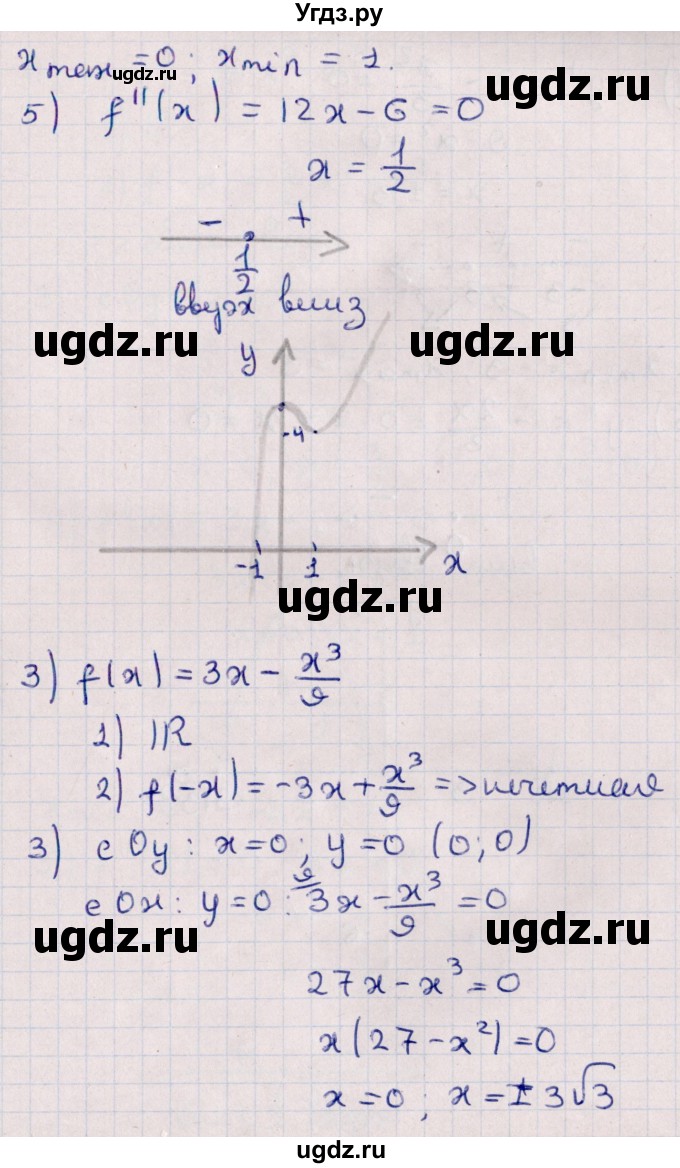 Угдз.ру
x max = 0; x min = 1.
ugdz.ru
ugdz.ru
5) f''(x) = 12x - 6 = 0
x = 1/2
- +
1/2
вверх вниз
ugdz.ru ugdz.ru
y
-4
-1 1 x
ugdz.ru
3) f(x) = 3x - x³/9
1) ℝ
2) f(-x) = -3x + x³/9 => нечетная
3) с Oy: x=0; y=0 (0;0)
с Ox: y=0: 9/ 3x - x³/9 = 0
ugdz.ru ugdz.ru
27x - x³ = 0
x(27 - x²) = 0
x = 0; x = ±3√3
ugdz.ru